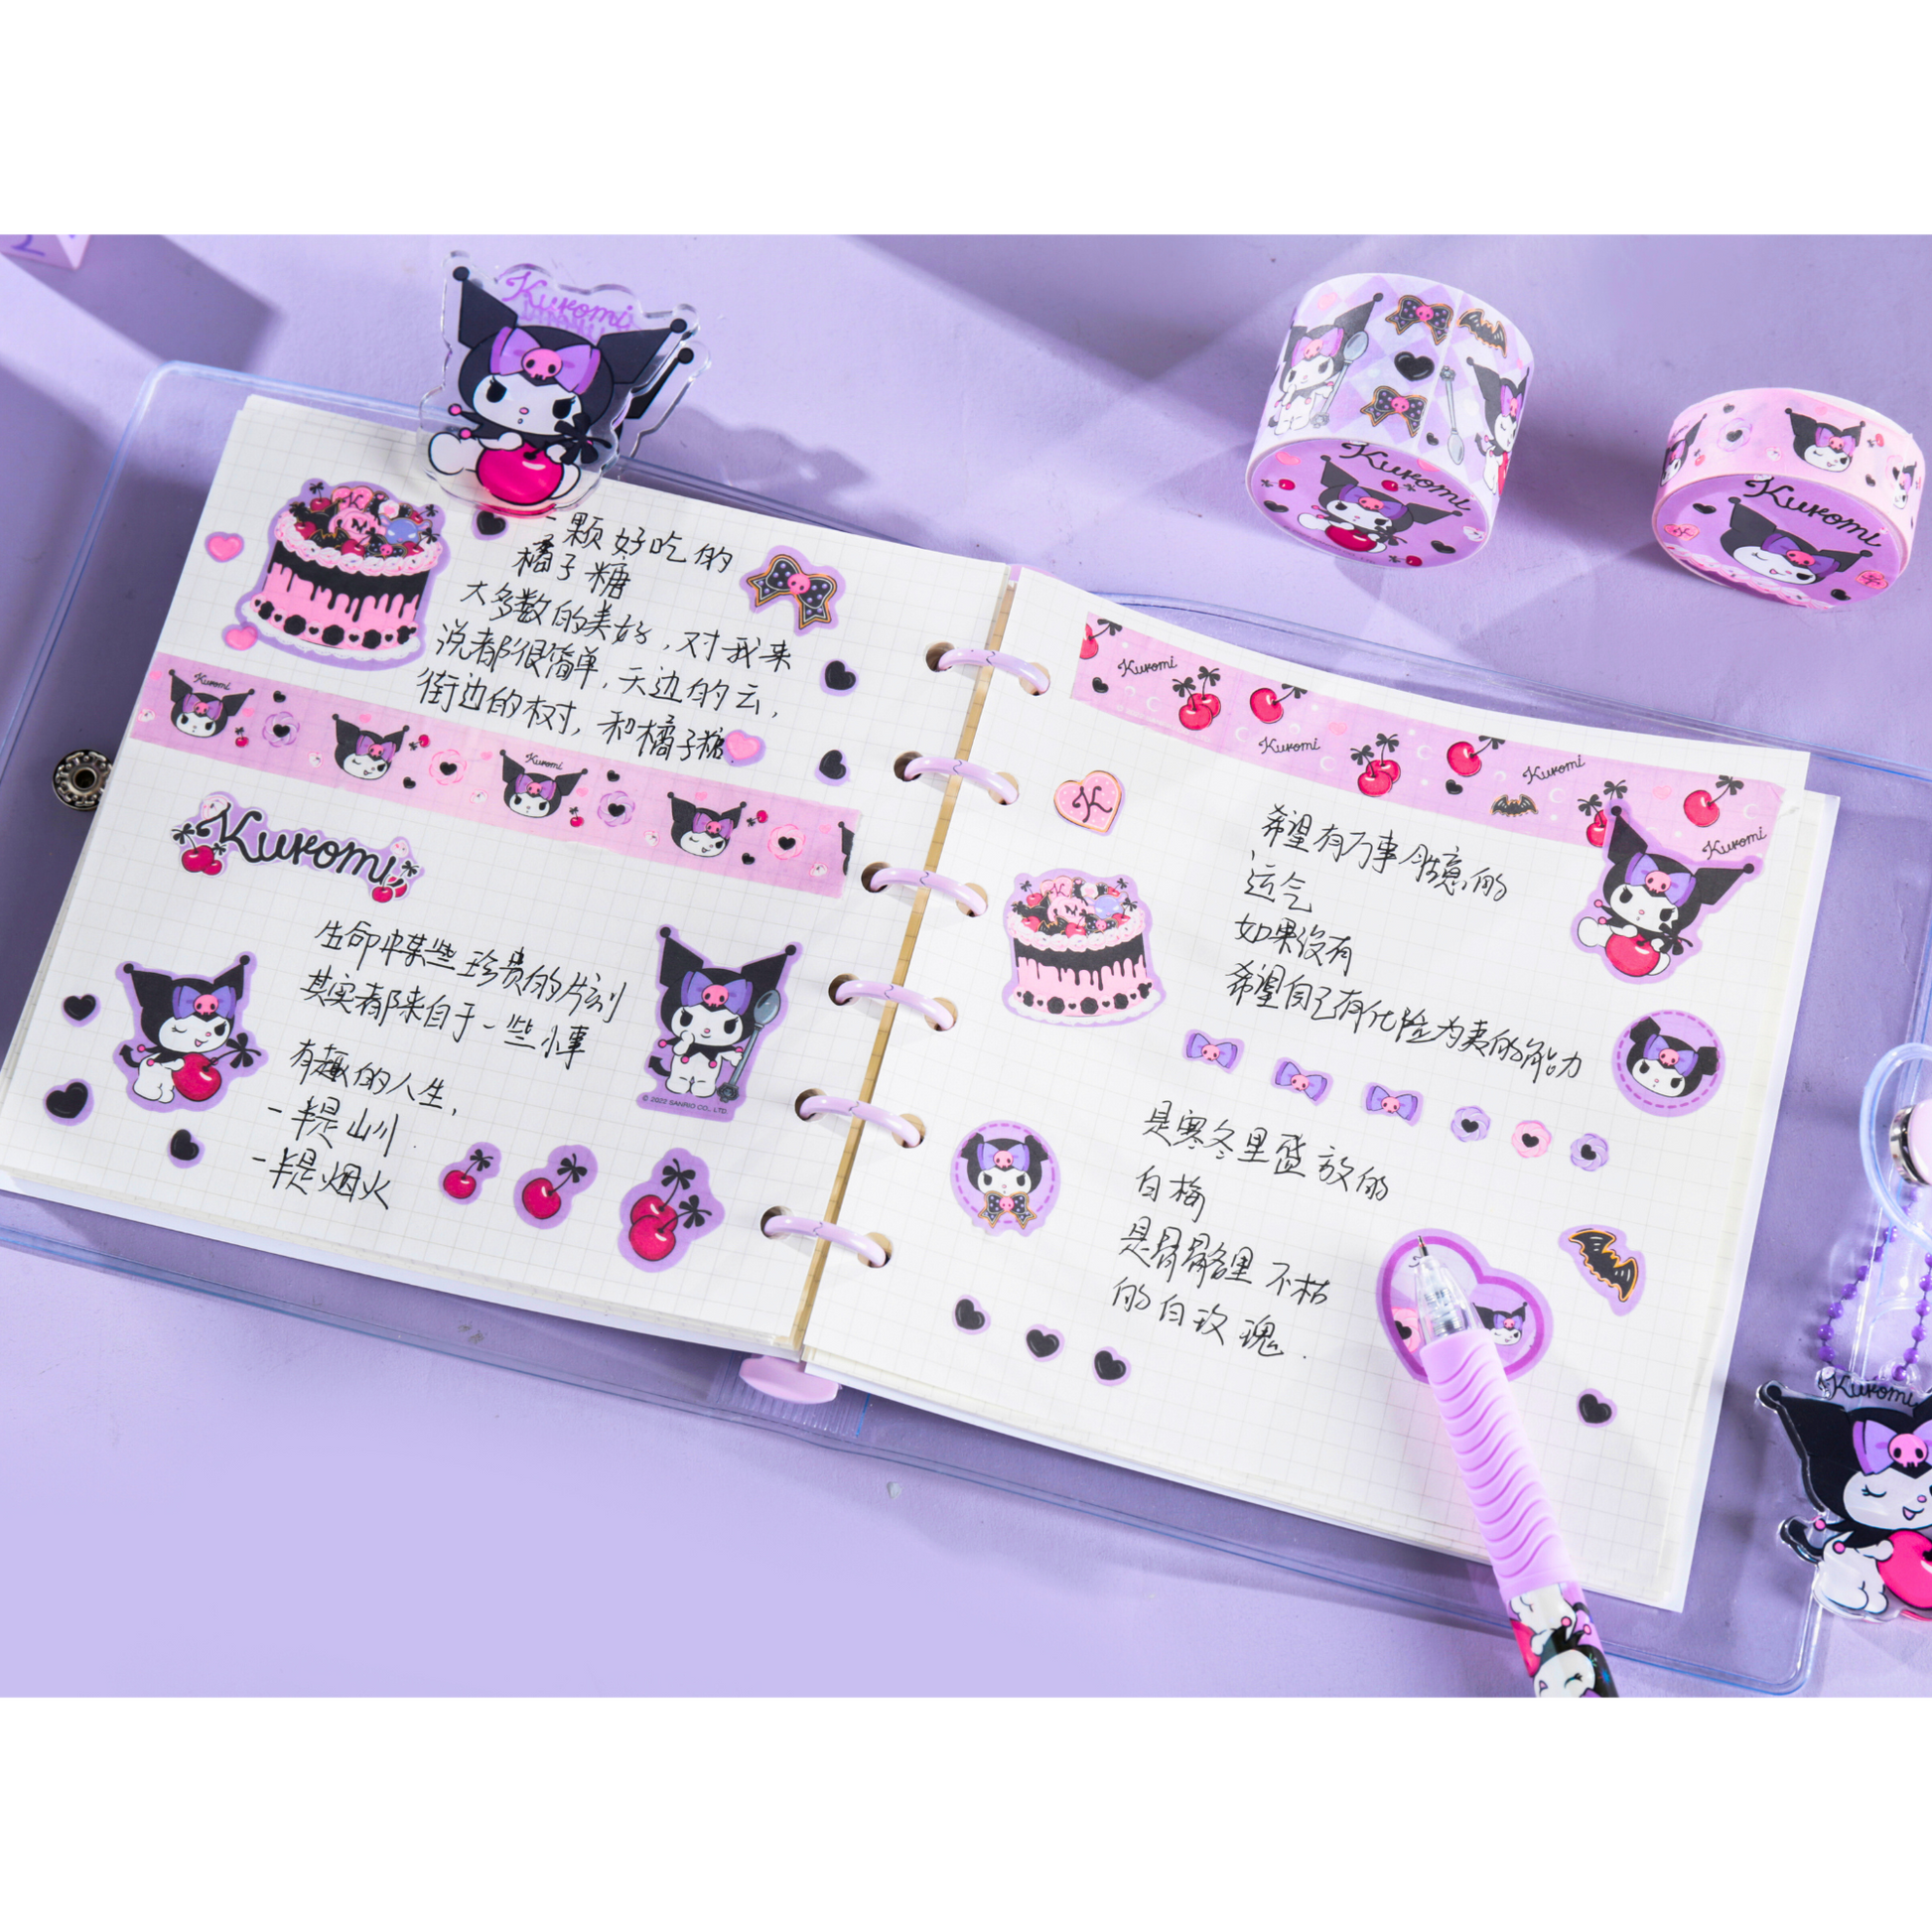 Kuromi
一颗好吃的
橘子糖
大多数的美好，对我来
说都很简单，天边的云，
街边的树，和橘子糖
Kuromi
Kuromi
Kuromi
生命中某些珍贵的片刻
其实都来自于一些小事
有趣的人生，
一半是山川
一半是烟火
© 2022 SANRIO CO., LTD.
Kuromi
Kuromi
Kuromi
Kuromi
Kuromi
Kuromi
K
希望有万事胜意的
运气
如果没有
希望自己有化险为夷的能力
是寒冬里盛放的
白梅
是骨骼里不枯
的白玫瑰.
Kuromi